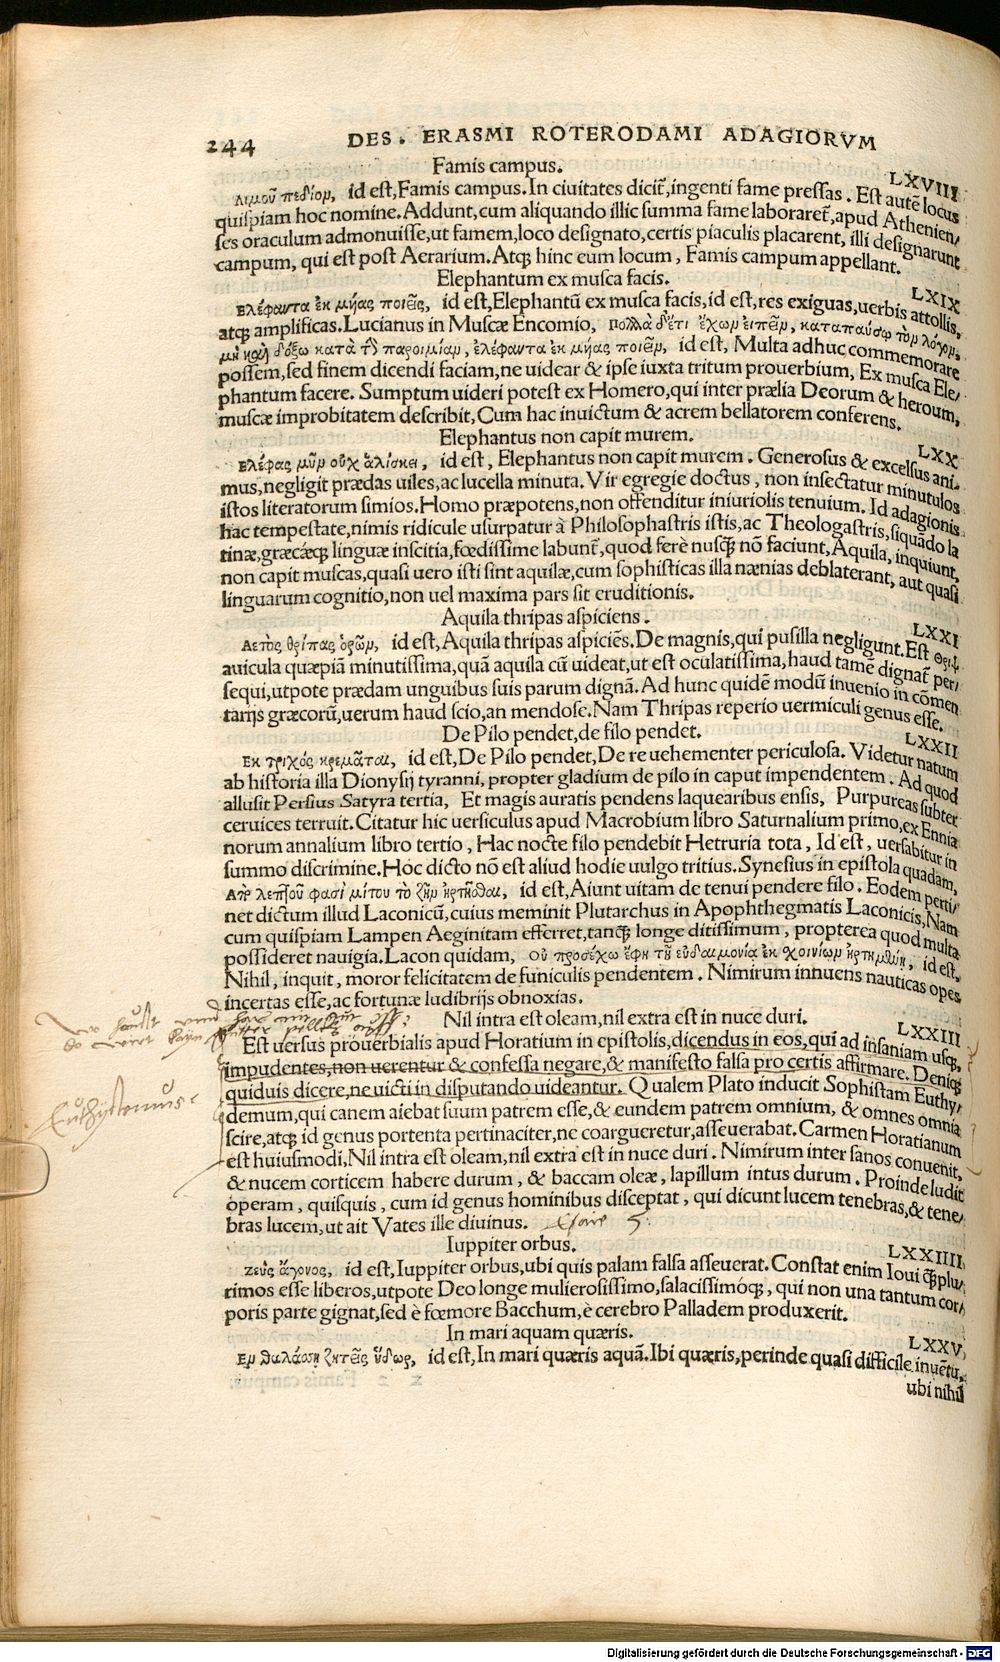 244 DES. ERASMI ROTERODAMI ADAGIORVM
Famis campus. LXVIII
Λιμοῦ πεδίον, id est, Famis campus. In ciuitates dicit᷑, ingenti fame pressas. Est autē locus
quispiam hoc nomine. Addunt, cum aliquando illic summa fame laboraret᷑, apud Athenien/
ses oraculum admonuisse, ut famem, loco designato, certis piaculis placarent, illi designarunt
campum, qui est post Aerarium. Atq; hinc eum locum, Famis campum appellant.
Elephantum ex musca facis. LXIX
Ελέφαντα ἐκ μύας ποιεῖς, id est, Elephantū ex musca facis, id est, res exiguas, uerbis attollis,
atq; amplificas. Lucianus in Muscæ Encomio, πολλὰ δ’ἔτι ἔχων εἰπεῖν, καταπαύσω τὸν λόγον,
μὴ καὶ δόξω κατὰ τὴν παροιμίαν, ἐλέφαντα ἐκ μύας ποιεῖν, id est, Multa adhuc commemorare
possem, sed finem dicendi faciam, ne uidear & ipse iuxta tritum prouerbium, Ex musca Ele/
phantum facere. Sumptum uideri potest ex Homero, qui inter prælia Deorum & heroum,
muscæ improbitatem describit, Cum hac inuictum & acrem bellatorem conferens.
Elephantus non capit murem. LXX
Ελέφας μῦν οὐχ ἁλίσκει, id est, Elephantus non capit murem. Generosus & excelsus ani.
mus, negligit prædas uiles, ac lucella minuta. Vir egregie doctus, non insectatur minutulos
istos literatorum simios. Homo præpotens, non offenditur iniuriolis tenuium. Id adagionis
hac tempestate, nimis ridicule usurpatur à Philosophastris istis, ac Theologastris, siquādo la
tinæ, græcæq; linguæ inscitia, fœdissime labunt᷑, quod ferè nusq̃ nō faciunt, Aquila, inquiunt,
non capit muscas, quasi uero isti sint aquilæ, cum sophisticas illa nænias deblaterant, aut quasi
linguarum cognitio, non uel maxima pars sit eruditionis.
Aquila thripas aspiciens. LXXI
Αετὸς θρίπας ὁρῶν, id est, Aquila thripas aspiciēs. De magnis, qui pusilla negligunt. Est θρὶψ
auicula quæpiā minutissima, quā aquila cū uideat, ut est oculatissima, haud tamē dignat᷑ per/
sequi, utpote prædam unguibus suis parum dignā. Ad hunc quidē modū inuenio in cōmen
tarijs græcorū, uerum haud scio, an mendose. Nam Thripas reperio uermiculi genus esse.
De Pilo pendet, de filo pendet. LXXII
Εκ τριχός κρεμᾶται, id est, De Pilo pendet, De re uehementer periculosa. Videtur natum
ab historia illa Dionysij tyranni, propter gladium de pilo in caput impendentem. Ad quod
allusit Persius Satyra tertia, Et magis auratis pendens laquearibus ensis, Purpureas subter
ceruices terruit. Citatur hic uersiculus apud Macrobium libro Saturnalium primo, ex Ennia
norum annalium libro tertio, Hac nocte filo pendebit Hetruria tota, Id est, uersabitur in
summo discrimine. Hoc dicto nō est aliud hodie uulgo tritius. Synesius in epistola quadam,
Απὸ λεπτοῦ φασὶ μίτου τὸ ζῆν ἠρτῆσθαι, id est, Aiunt uitam de tenui pendere filo. Eodem perti/
net dictum illud Laconicū, cuius meminit Plutarchus in Apophthegmatis Laconicis, Nam
cum quispiam Lampen Aeginitam efferret, tanq̃ longe ditissimum, propterea quod multa
possideret nauigia. Lacon quidam, οὐ προσέχω ἔφη τῇ εὐδαιμονίᾳ ἐκ χοινίων ἠρτημένῃ, id est,
Nihil, inquit, moror felicitatem de funiculis pendentem. Nimirum innuens nauticas opes
incertas esse, ac fortunæ ludibrijs obnoxias.
Nil intra est oleam, nil extra est in nuce duri. LXXIII
Est uersus prouerbialis apud Horatium in epistolis, dicendus in eos, qui ad insaniam usq;
impudentes, non uerentur & confessa negare, & manifesto falsa pro certis affirmare. Deniq;
quiduis dicere, ne uicti in disputando uideantur. Qualem Plato inducit Sophistam Euthy/
Euthydemus
demum, qui canem aiebat suum patrem esse, & eundem patrem omnium, & omnes omnia
scire, atq; id genus portenta pertinaciter, ne coargueretur, asseuerabat. Carmen Horatianum
est huiusmodi, Nil intra est oleam, nil extra est in nuce duri. Nimirum inter sanos conuenit,
& nucem corticem habere durum, & baccam oleæ, lapillum intus durum. Proinde ludit
operam, quisquis, cum id genus hominibus disceptat, qui dicunt lucem tenebras, & tene/
bras lucem, ut ait Vates ille diuinus. Esaie 5.
Iuppiter orbus. LXXIIII
Ζεὺς ἄγονος, id est, Iuppiter orbus, ubi quis palam falsa asseuerat. Constat enim Ioui q̃plu/
rimos esse liberos, utpote Deo longe mulierosissimo, salacissimóq;, qui non una tantum cor/
poris parte gignat, sed è fœmore Bacchum, è cerebro Palladem produxerit.
In mari aquam quæris. LXXV
Εν θαλάσσῃ ζητεῖς ὕδωρ, id est, In mari quæris aquā. Ibi quæris, perinde quasi difficile inuētu,
ubi nihil
Digitalisierung gefördert durch die Deutsche Forschungsgemeinschaft - DFG